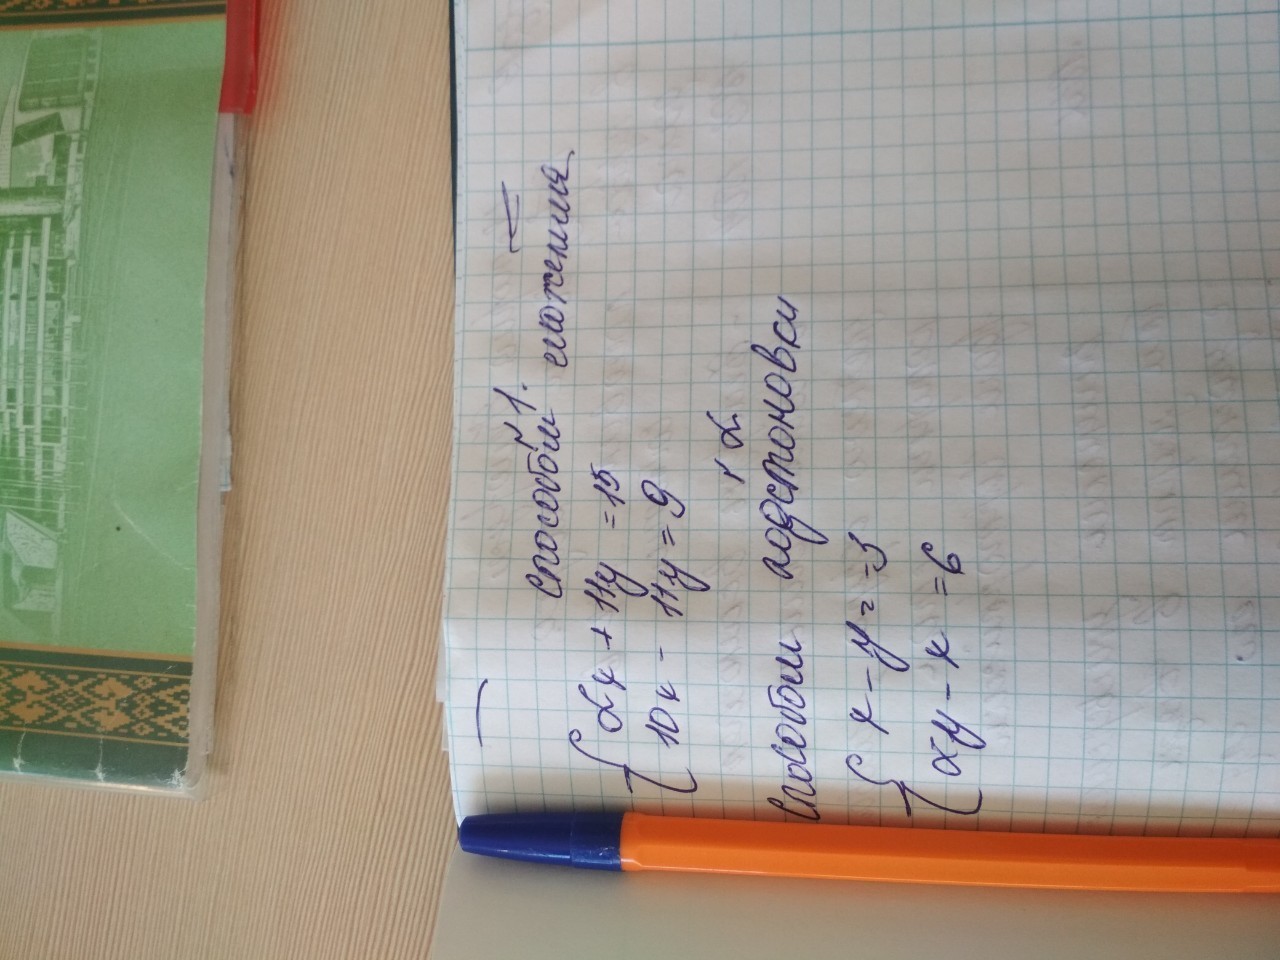 1.
способом сложения
2x + 11y = 15
10x - 11y = 9
2
способом подстоновки
x - y = -3
xy - x = 6